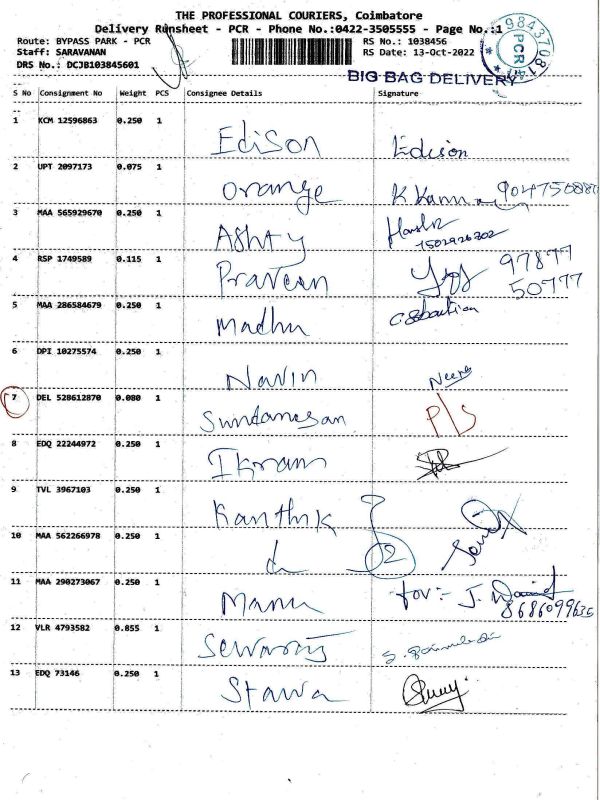 THE PROFESSIONAL COURIERS, Coimbatore
Delivery Runsheet - PCR - Phone No.:0422-3505555 - Page No.:1
Route: BYPASS PARK - PCR RS No.: 1038456
Staff: SARAVANAN RS Date: 13-Oct-2022
DRS No.: DCJB103845601
PCR
BIG BAG DELIVERY
S No Consignment No Weight PCS Consignee Details Signature
1 KCM 12596863 0.250 1 Edison Edison
2 UPT 2097173 0.075 1 Orange K. Kanna
3 MAA 565929670 0.250 1 Ashty
4 RSP 1749589 0.115 1 Praveen 97877
50777
5 MAA 286584679 0.250 1 Madhu
6 DPI 10275574 0.250 1 Navin
7 DEL 528612870 0.080 1 Sundaresan P/S
8 EDQ 22244972 0.250 1 Ikram
9 TVL 3967103 0.250 1 Karthik
10 MAA 562266978 0.250 1 02
11 MAA 290273067 0.250 1 Manu for:- J.
8686099636
12 VLR 4793582 0.855 1 Selvaraj
13 EDQ 73146 0.250 1